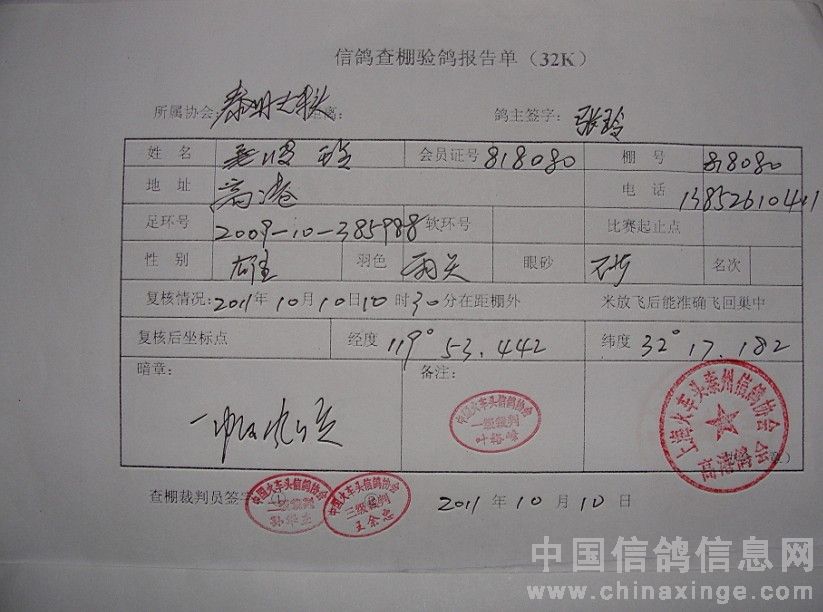 信鸽查棚验鸽报告单（32K）
所属协会： 距离： 鸽主签字：张玲
姓 名 会员证号 818080 棚 号 818080
地 址 高港 电 话
足环号 2009-10-385988 软环号 比赛起止点
性 别 雄 羽色 雨点 眼砂 名次
复核情况：2011年10月10日10时30分在距棚外 米放飞后能准确飞回巢中
复核后坐标点 经度 119° 53.442 纬度 32° 17.182
暗章： 备注：
一帆风顺
中国火车头信鸽协会
一级裁判
叶裕峰
上海火车头泰州信鸽协会
高港鸽会
查棚裁判员签字
中国火车头信鸽协会
二级裁判
中国火车头信鸽协会
三级裁判
王余忠
2011 年 10 月 10 日
中国信鸽信息网
www.chinaxinge.com